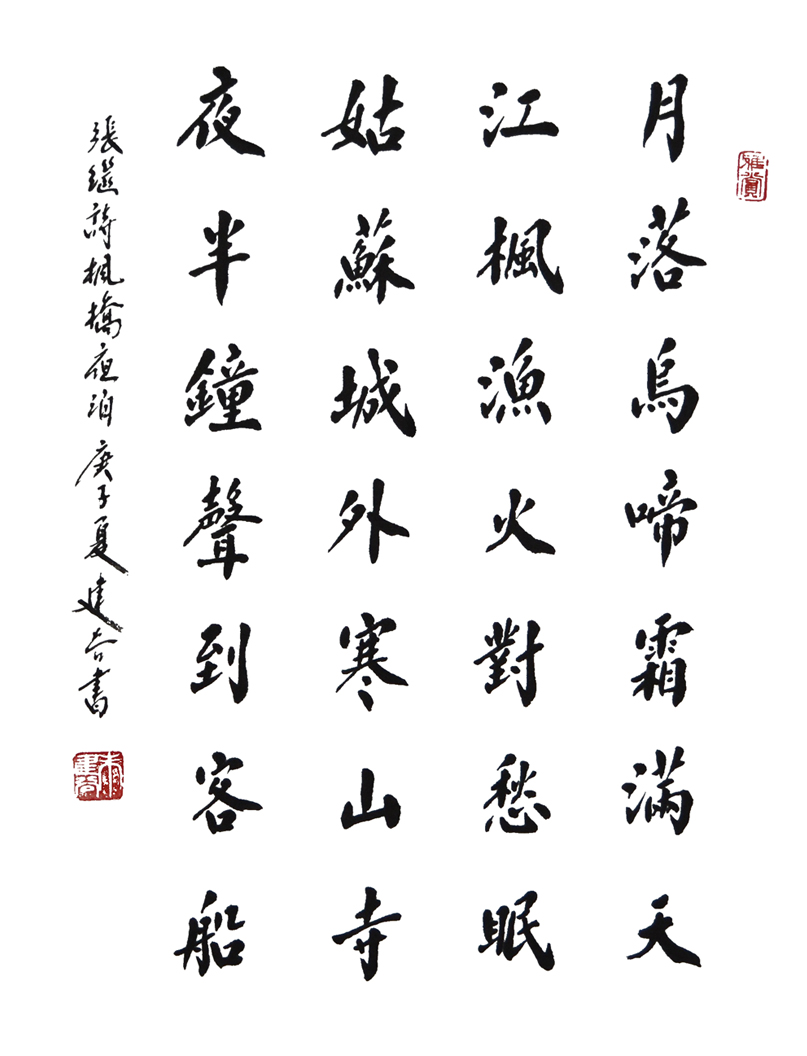 雅賞
月落烏啼霜滿天
江楓漁火對愁眠
姑蘇城外寒山寺
夜半鐘聲到客船
張繼詩楓橋夜泊庚子夏建谷書